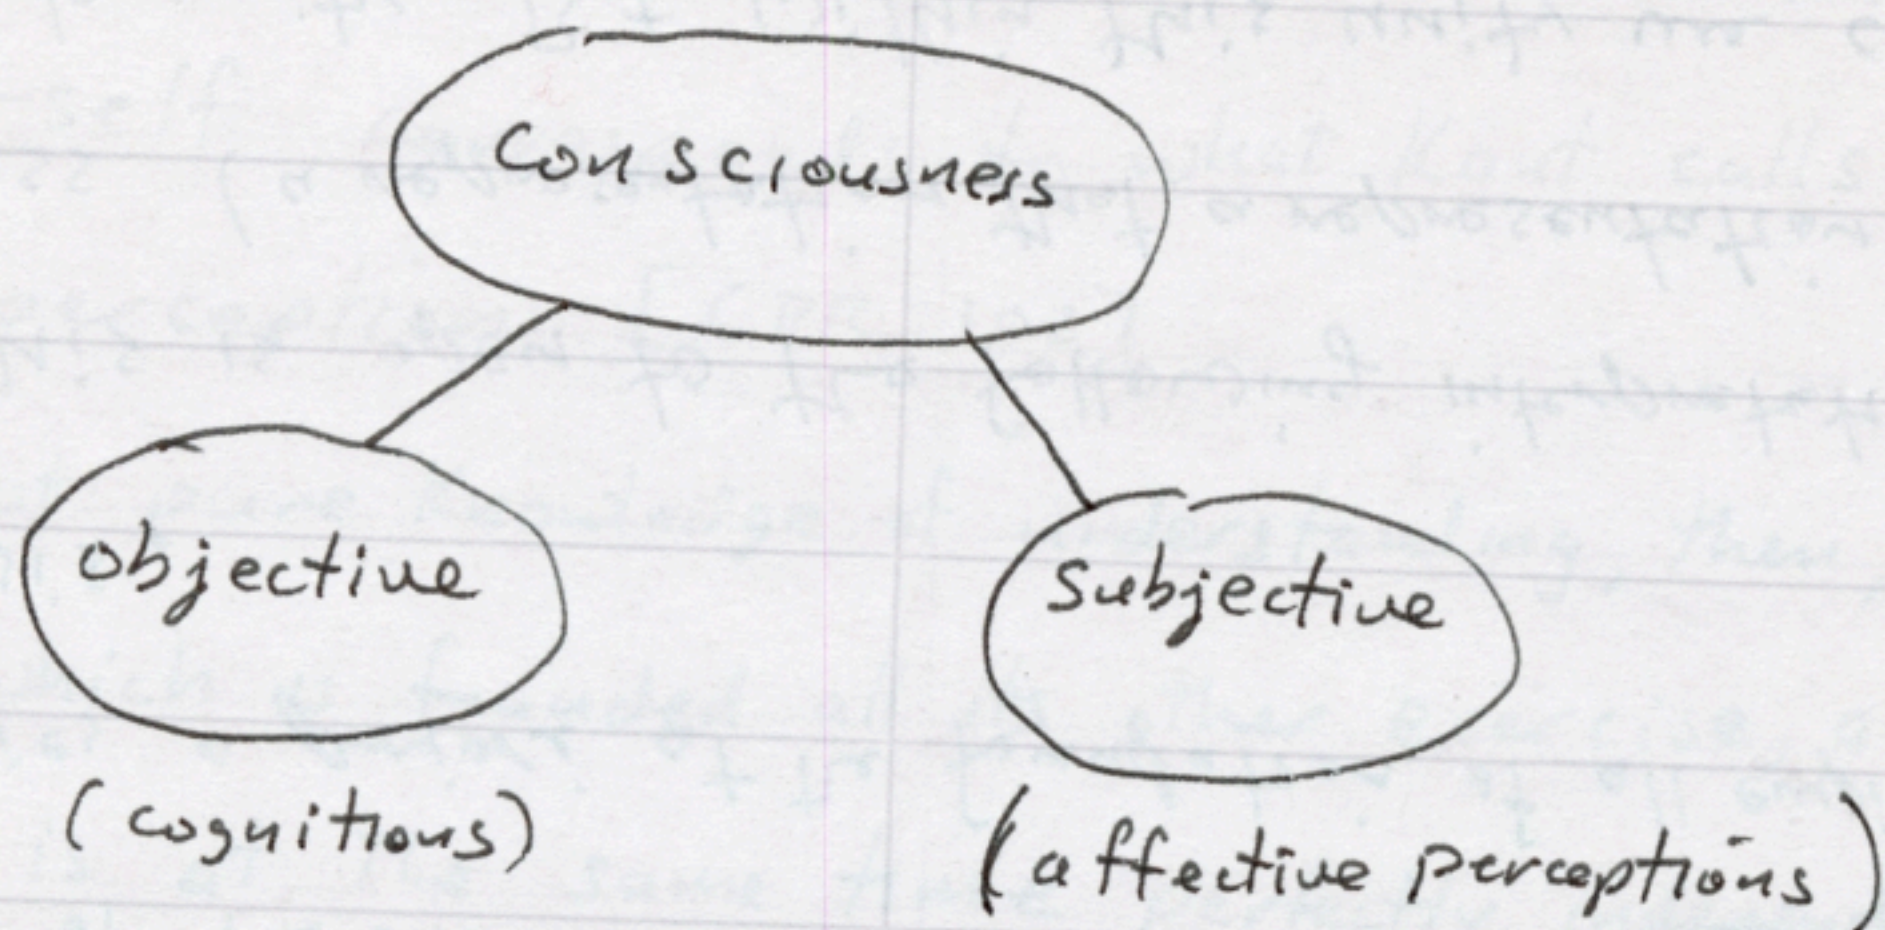 Consciousness
objective
Subjective
(cognitions)
(affective perceptions)